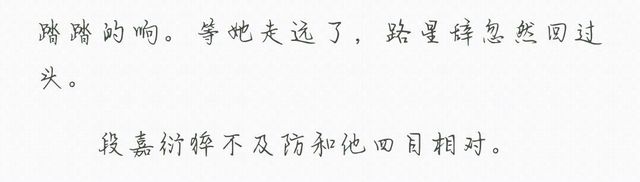 踏踏的响。等她走远了，路星辞忽然回过
头。
段嘉衍猝不及防和他四目相对。